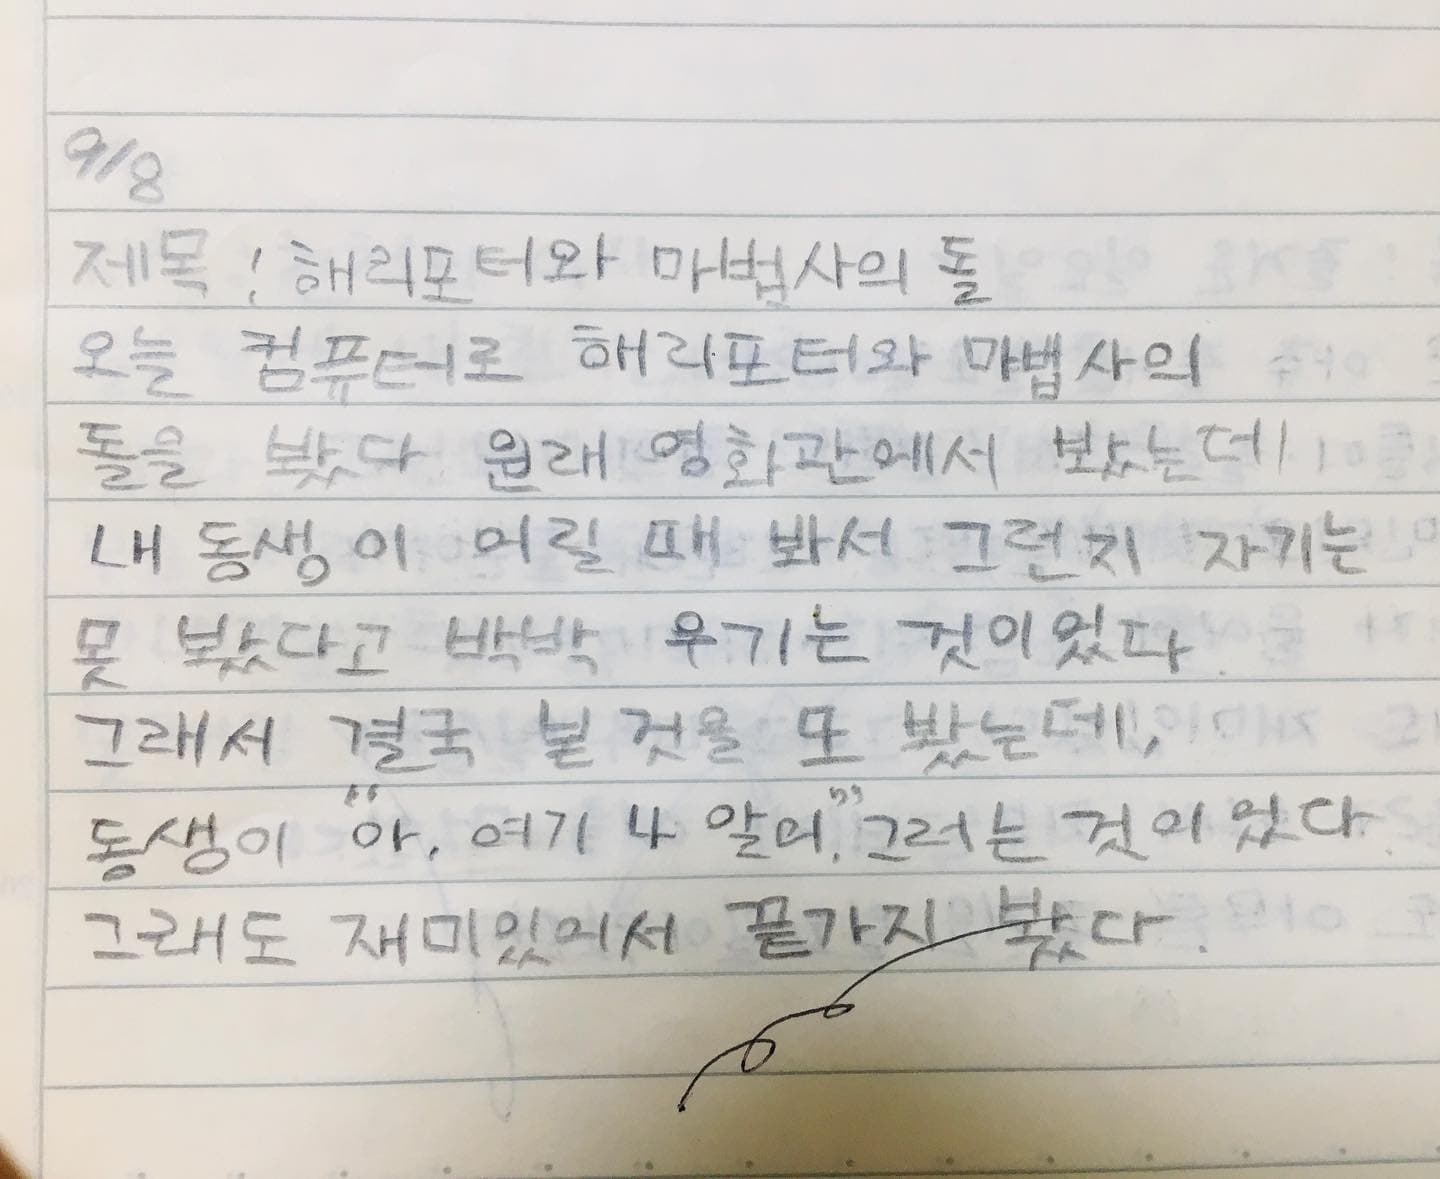 9/8
제목 : 해리포터와 마법사의 돌
오늘 컴퓨터로 해리포터와 마법사의
돌을 봤다. 원래 영화관에서 봤는데
내 동생이 어릴 때 봐서 그런지 자기는
못 봤다고 박박 우기는 것이었다.
그래서 결국 본 것을 또 봤는데,
동생이 "아, 여기 나 알어". 그러는 것이었다.
그래도 재미있어서 끝가지 봤다.